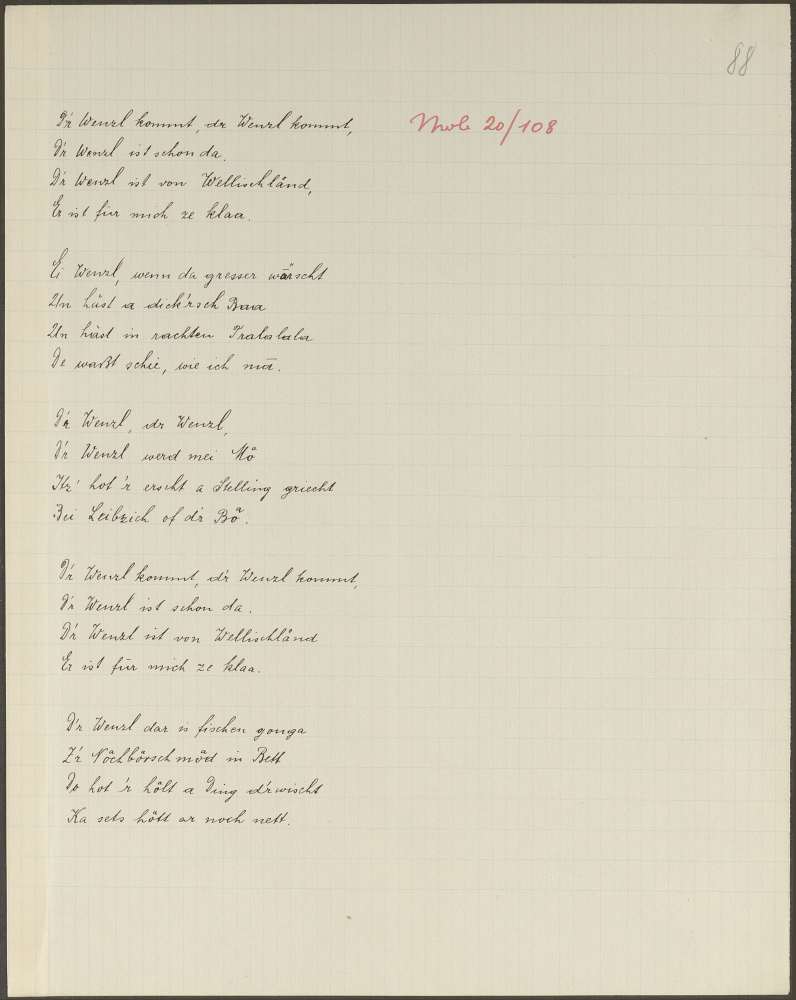 88
Mob 20/108
D'r Wenzl kommt, dr Wenzl kommt,
D'r Wenzl ist schon da.
D'r Wenzl ist von Wellischlånd,
Er ist für mich ze klaa.
Ei Wenzl, wenn du gresser wärscht
Un håst a dick'rsch Baa
Un håst in rachten Tralalala
De waßt schie, wie ich mā.
D'r Wenzl, dr Wenzl,
D'r Wenzl werd mei Må
Itz' hot 'r erscht a Stelling griecht
Bei Leibzich of d'r Bå.
D'r Wenzl kommt, d'r Wenzl kommt,
D'r Wenzl ist schon da.
D'r Wenzl ist von Wellischlånd
Er ist für mich ze klaa.
D'r Wenzl dar is fischen gonga
Z'r Nåchbårschmåd in Bett
Do hot 'r hålt a Ding d'rwischt
Ka sets hått ar noch nett.